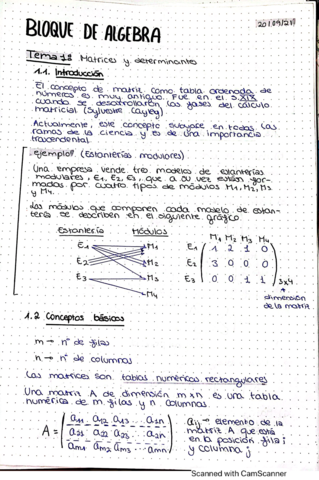 BLOQUE DE ALGEBRA
20/09/21
Tema 1: Matrices y determinantes
1.1. Introducción
El concepto de matriz como tabla ordenada de
números es muy antiguo. Fue en el S.XIX
cuando se desarrollaron las bases del cálculo
matricial (Sylvestre Cayley)
Actualmente, este concepto subyace en todas las
ramas de la ciencia y es de una importancia
trascendental.
Ejemplo (Estanterías modulares)
Una empresa vende tres modelos de estanterías
modulares, E1, E2, E3, que a su vez están for-
madas por cuatro tipos de módulos M1, M2, M3
y M4.
Los módulos que componen cada modelo de estan-
tería se describen en el siguiente gráfico.
Estantería Módulos
E1 M1
E2 M2
E3 M3
M4
M1 M2 M3 M4
E1 1 2 1 0
E2 3 0 0 0
E3 0 0 1 1 3x4
dimensión
de la matriz
1.2 Conceptos básicos
m → nº de filas
n → nº de columnas
Las matrices son tablas numéricas rectangulares
Una matriz A de dimensión m×n es una tabla
numérica de m filas y n columnas
A = ( a11 a12 a13 ... a1n
a21 a22 a23 ... a2n
am1 am2 am3 ... amn )
aij → elemento de la
matriz A que está
en la posición fila i
y columna j
Scanned with CamScanner